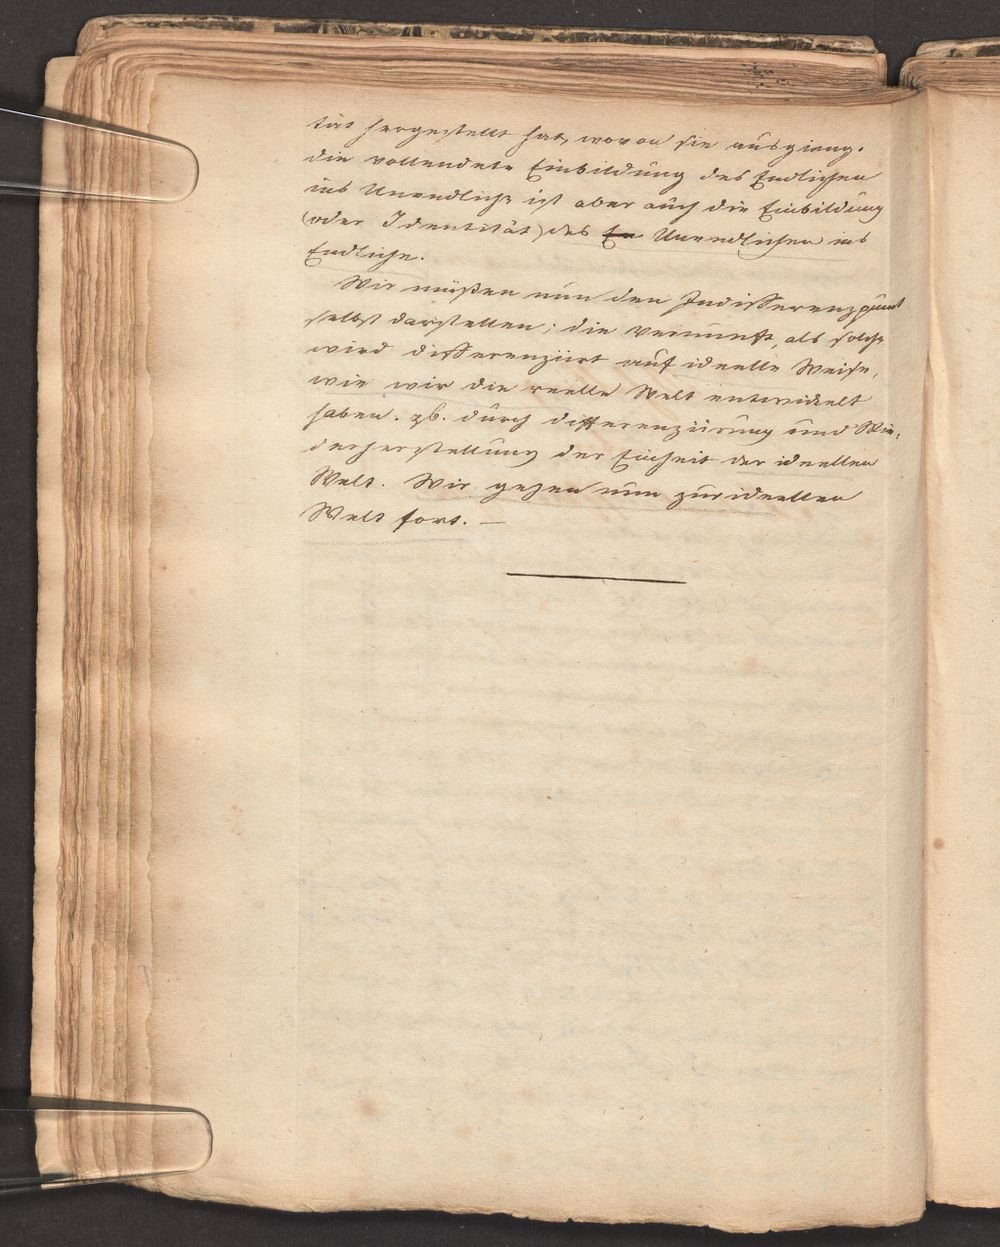 tät hergestellt hat, wovon sie ausgieng.
die vollendete Einbildung des Endlichen
ins Unendliche ist aber auch die Einbildung
(oder Identität) des En Unendlichen ins
Endliche.
Wir müßen nun den Indifferenzpunct
selbst darstellen; die Vernunft, als solche
wird differenziirt auf ideelle Weise,
wie wir die reelle Welt entwickelt
haben. zb. durch differenziirung und Wie-
derherstellung der Einheit der ideellen
Welt. Wir gehen nun zur ideellen
Welt fort. —